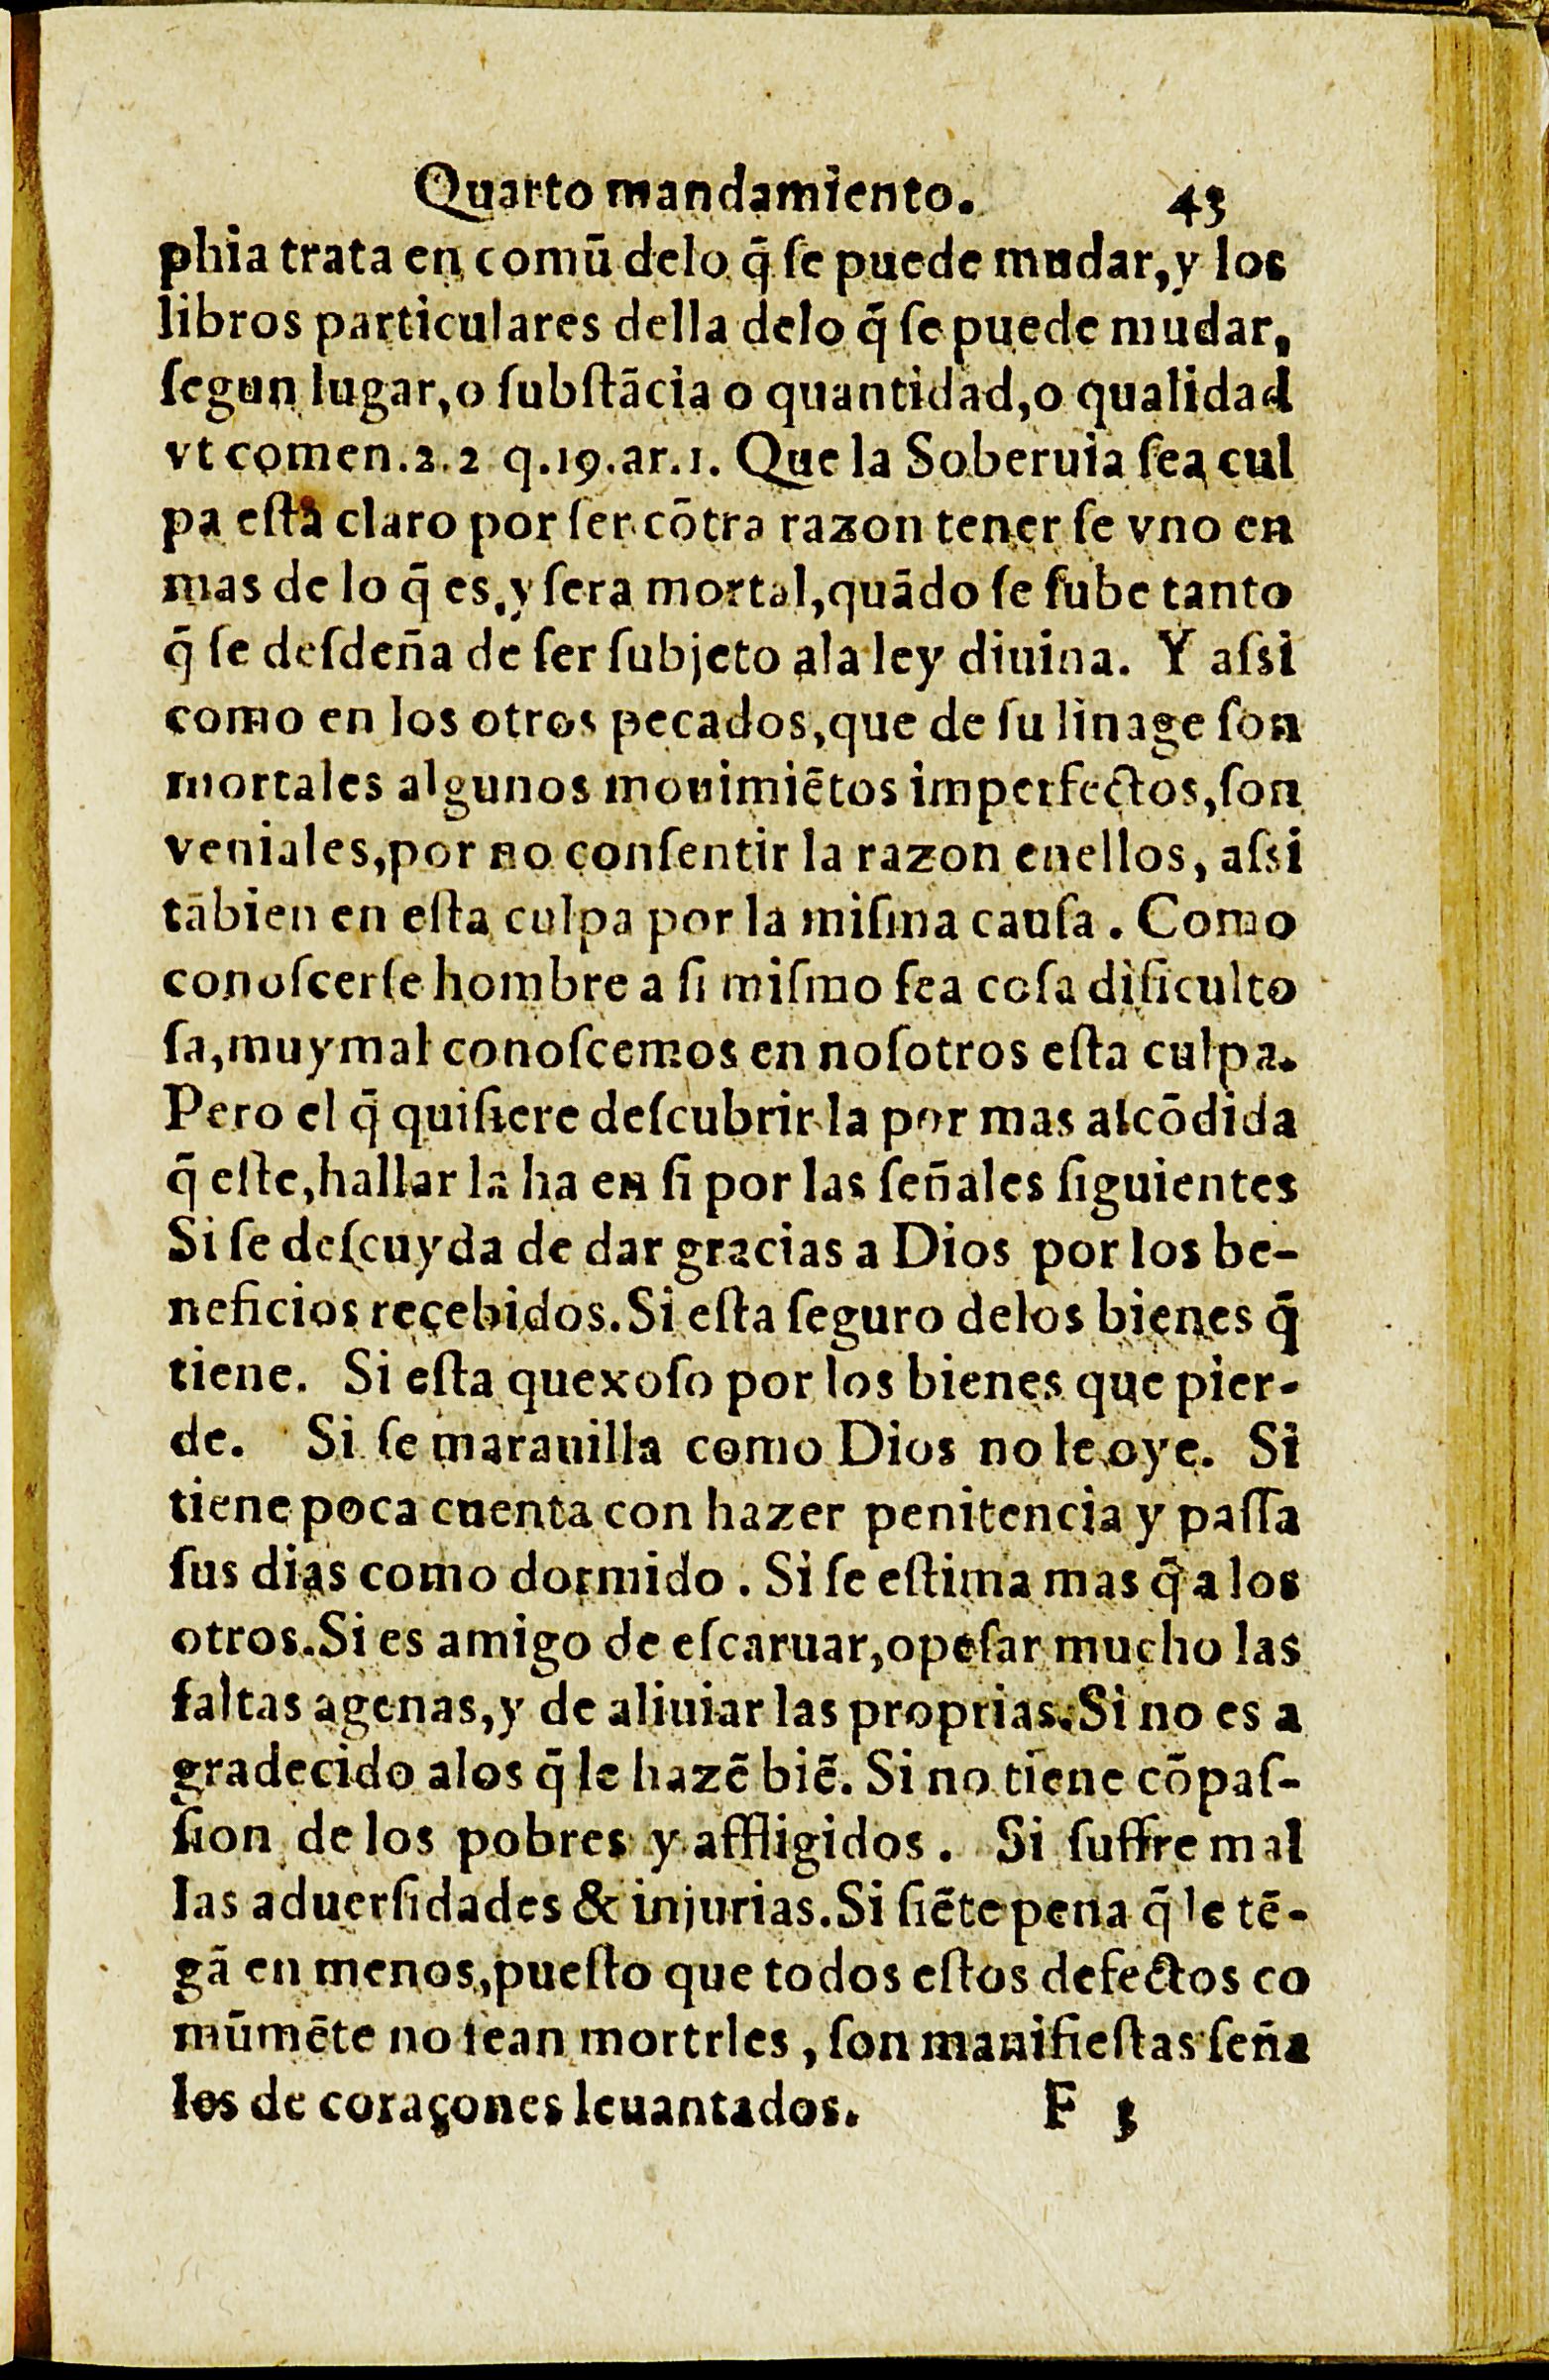 Quarto mandamiento. 43
phia trata en comū delo q̄ ſe puede mudar, y los
libros particulares della delo q̄ ſe puede mudar,
ſegun lugar, o ſubſtācia o quantidad, o qualidad
vt comen.2.2 q.19.ar.1. Que la Soberuia ſea cul
pa eſta claro por ſer cōtra razon tener ſe vno en
mas de lo q̄ es, y ſera mortal, quādo ſe ſube tanto
q̄ ſe deſdeña de ſer ſubjeto ala ley diuina. Y aſsi
como en los otros pecados, que de ſu linage ſon
mortales algunos mouimiētos imperfectos, ſon
veniales, por no conſentir la razon enellos, aſsi
tābien en eſta culpa por la miſma cauſa. Como
conoſcerſe hombre a ſi miſmo ſea coſa dificulto
ſa, muy mal conoſcemos en noſotros eſta culpa.
Pero el q̄ quiſiere deſcubrir la por mas aſcōdida
q̄ eſte, hallar la ha en ſi por las ſeñales ſiguientes
Si ſe deſcuyda de dar gracias a Dios por los be-
neficios reçebidos. Si eſta ſeguro delos bienes q̄
tiene. Si eſta quexoſo por los bienes que pier-
de. Si ſe marauilla como Dios no le oye. Si
tiene poca cuenta con hazer penitencia y paſſa
ſus dias como dormido. Si ſe eſtima mas q̄ a los
otros. Si es amigo de eſcaruar, o peſar mucho las
faltas agenas, y de aliuiar las proprias. Si no es a
gradecido alos q̄ le hazē biē. Si no tiene cōpaſ-
ſion de los pobres y affligidos. Si ſuffre mal
las aduerſidades & injurias. Si ſiēte pena q̄ le tē-
gā en menos, pueſto que todos eſtos defectos co
mūmēte no ſean mortrles, ſon manifieſtas ſeña
les de coraçones leuantados. F 3